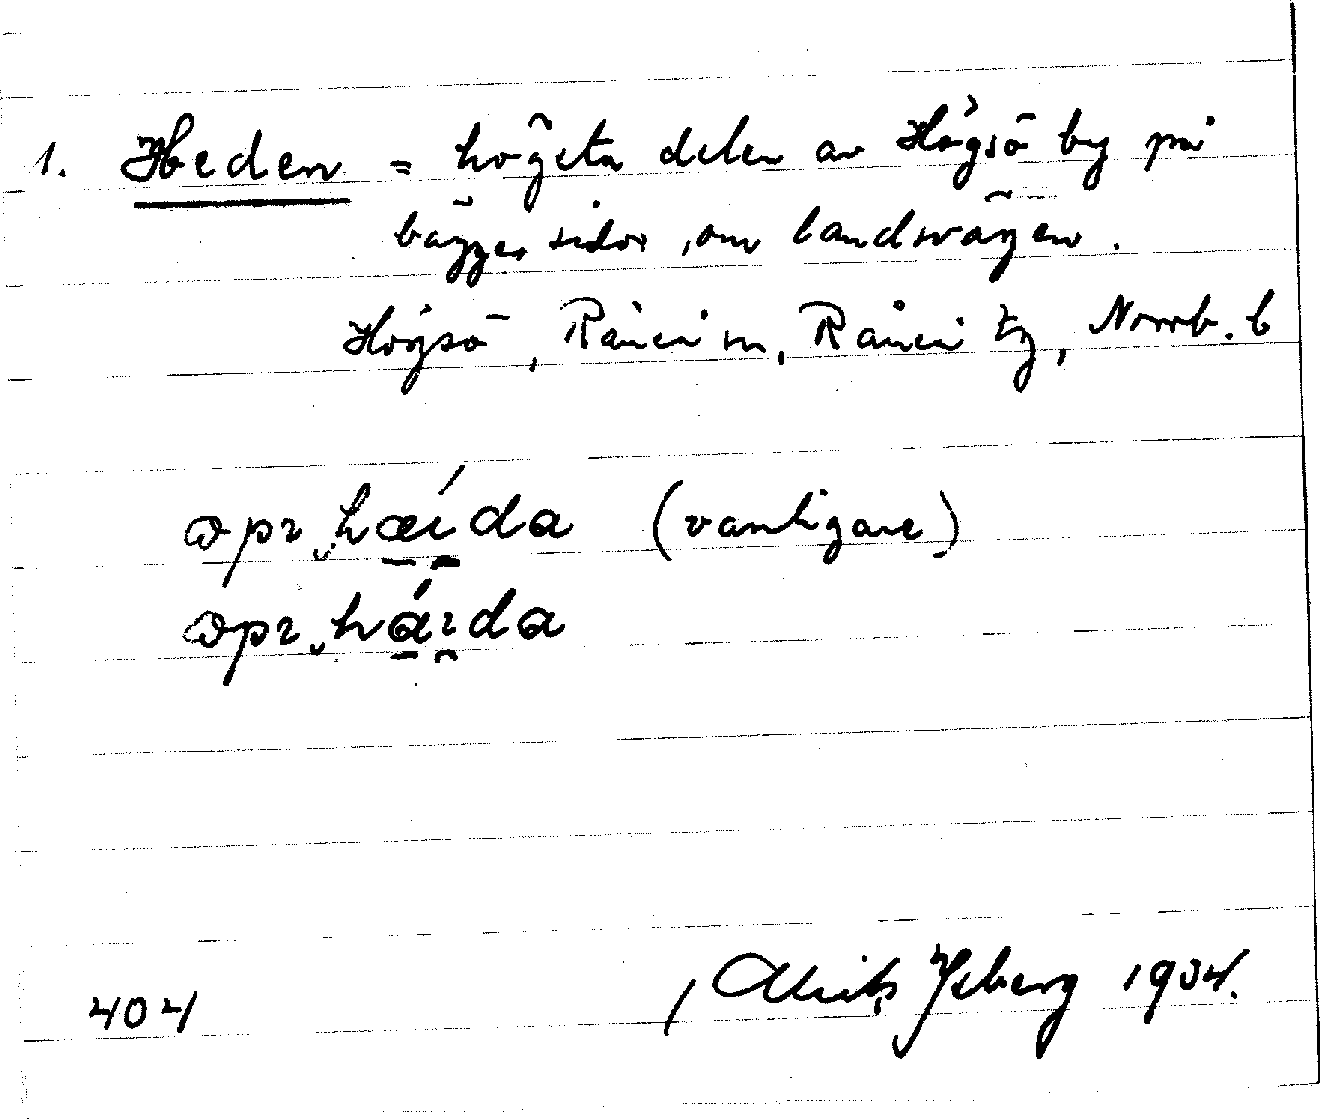 1. Heden = högsta delen av Högsö by på
bägge sidor om landsvägen.
Högsö, Råneå sn, Råneå tg, Norrb. l
hæida (vanligare)
haida
404
Isberg 1934.